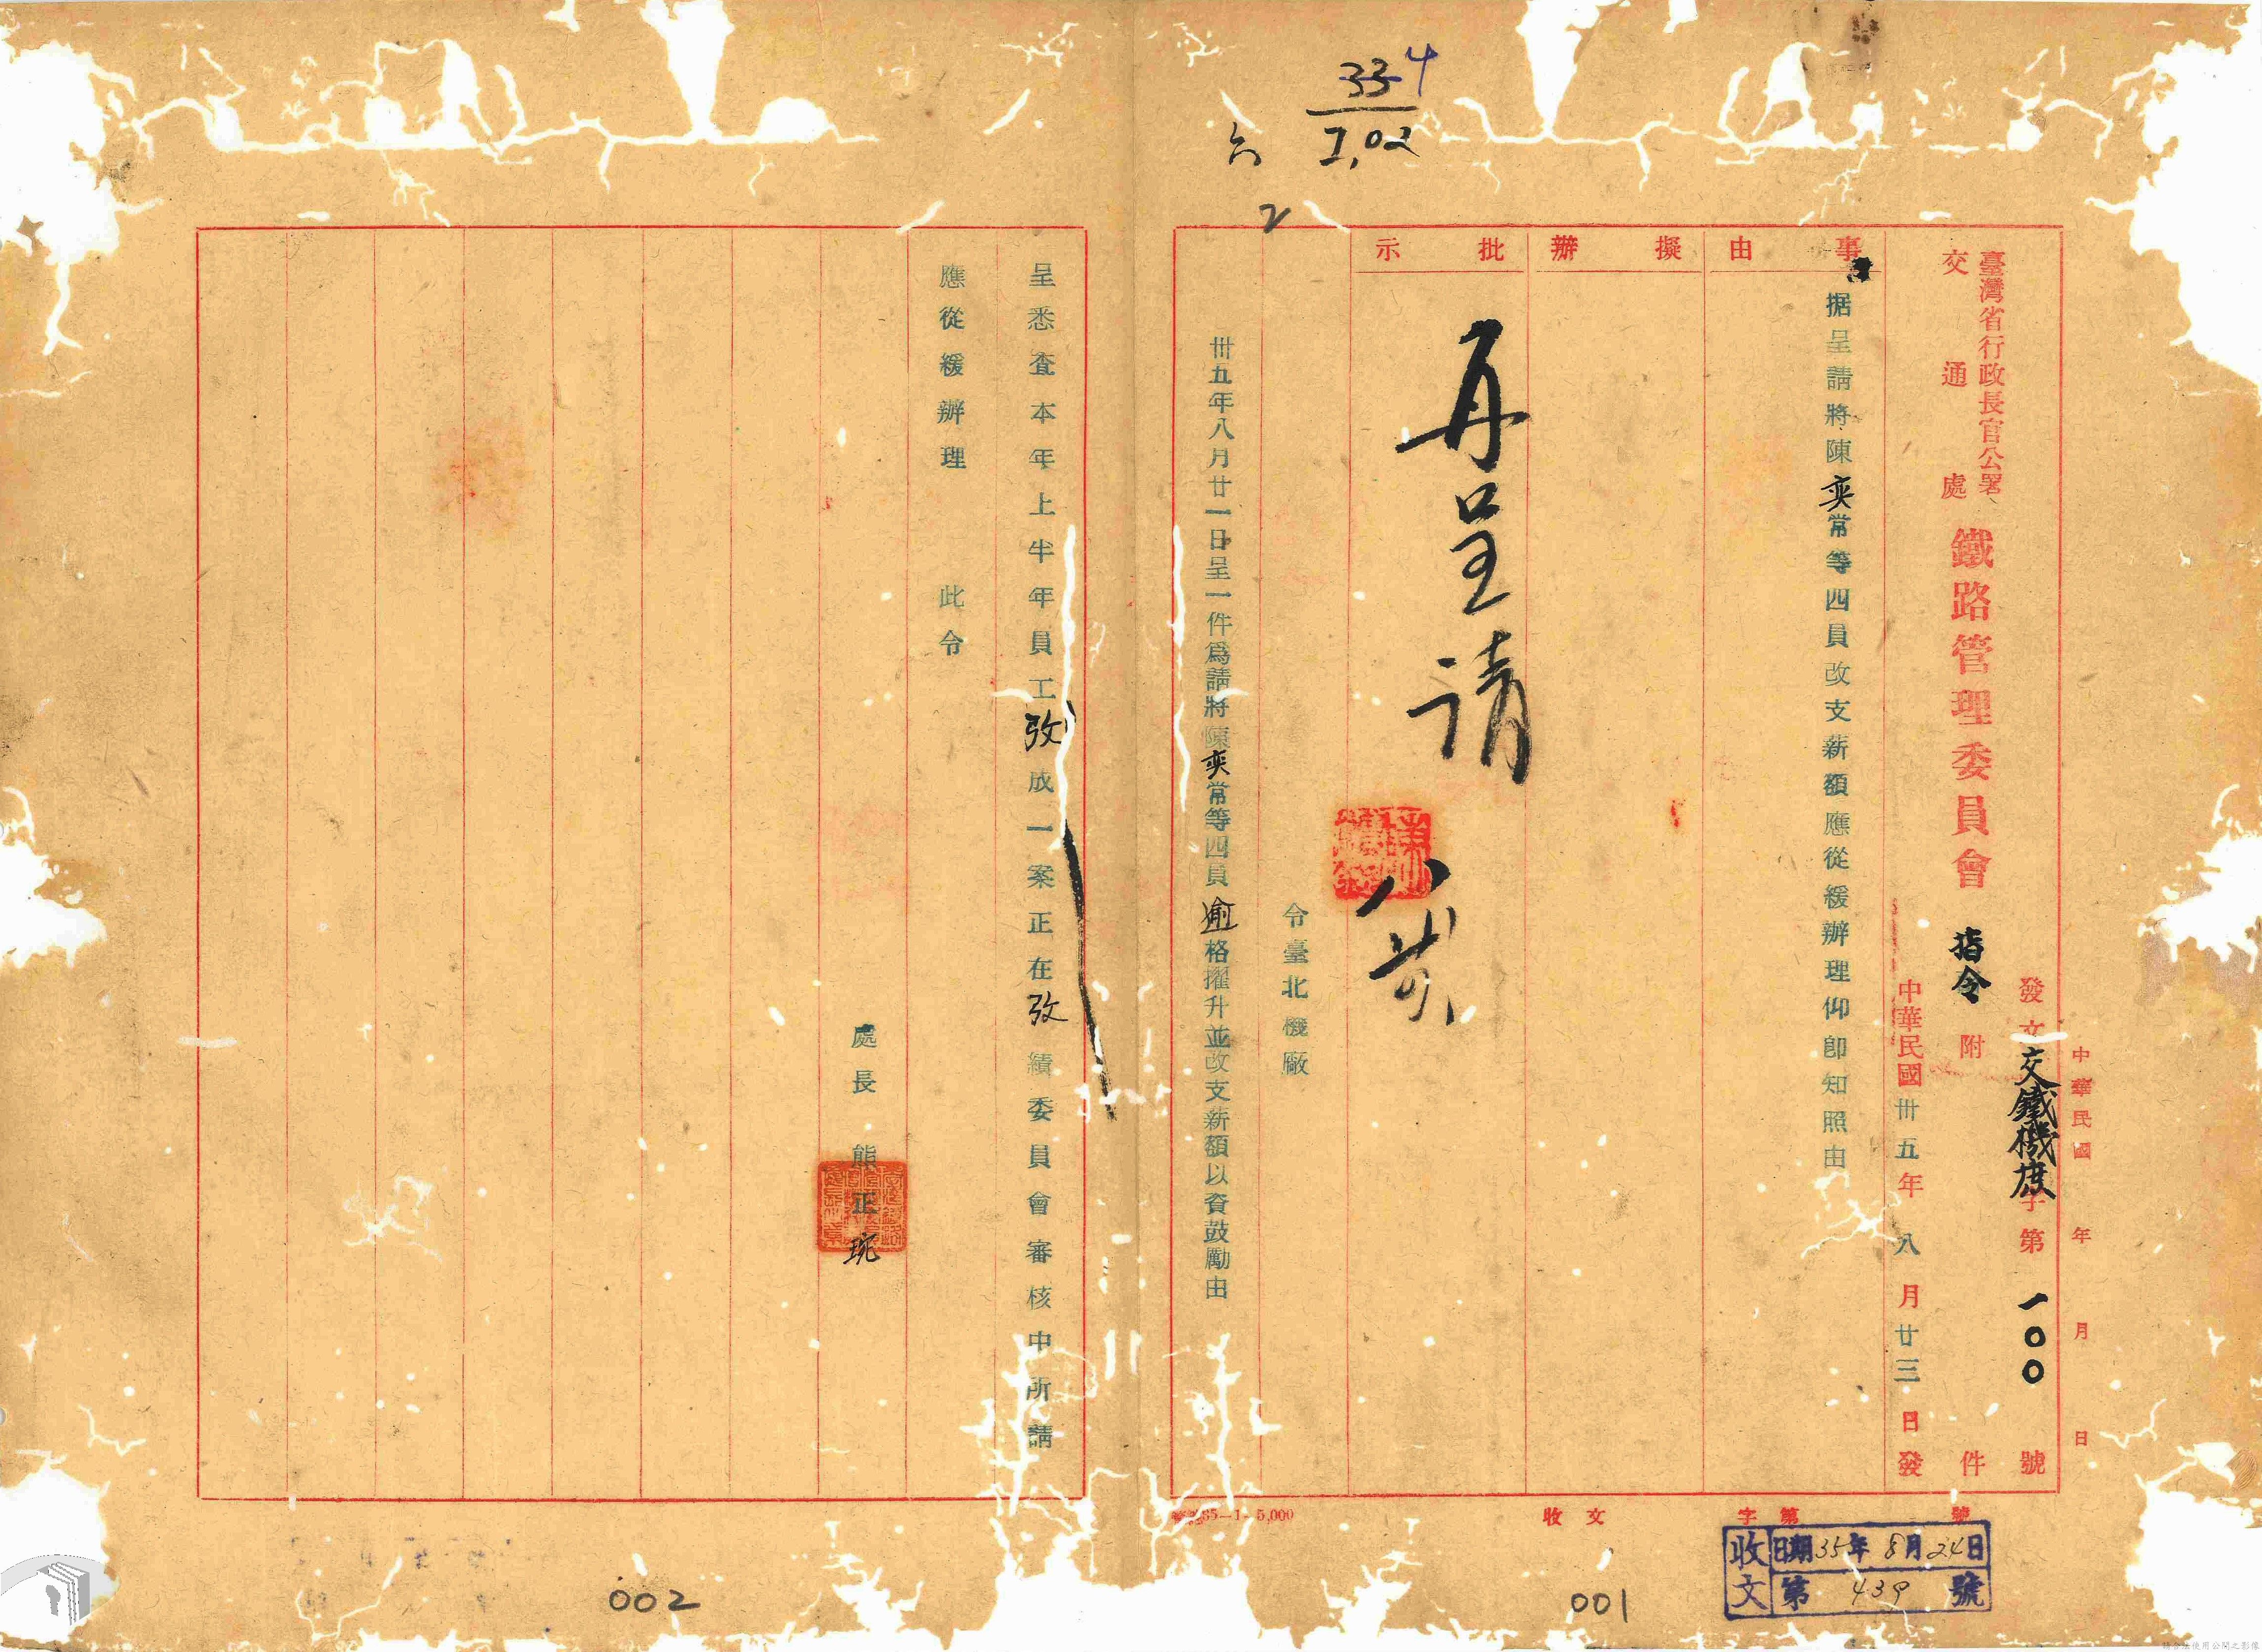 33 4
1,02
六
2
中華民國 年 月 日
發文交鐵機度字第一〇〇號
臺灣省行政長官公署
交通處
鐵路管理委員會 指令 附 件
中華民國卅五年八月廿三日發
事由
据呈請將陳奕常等四員改支薪額應從緩辦理仰即知照由
擬辦
批示
再呈請
令臺北機廠
卅五年八月廿一日呈一件爲請將陳奕常等四員逾格擢升並改支薪額以資鼓勵由
呈悉查本年上半年員工攷成一案正在攷績委員會審核中所請
應從緩辦理 此令
處長 熊正琬
35-1-5,000
收文 字第 號
收文
日期35年8月24日
第439號
001
002